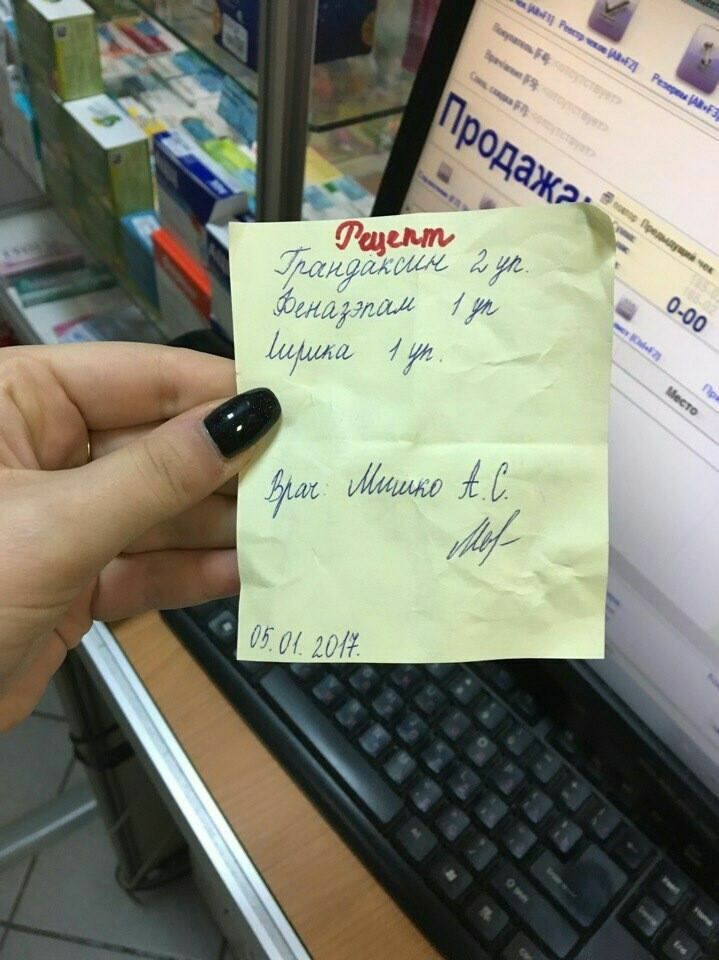 Рецепт
Грандаксин 2 уп.
Феназэпам 1 уп
Лирика 1 уп.
Врач: Мишко А.С.
05.01.2017.
чек [Alt+F1] Реестр чеков [Alt+F2]
Покупатель [F4]: <отсутствует>
Врач/линия [F5]: <отсутствует>
Спец. скидка [F7]: <отсутствует>
Резервы [Alt+F3]
Продажа
повтор Предыдущий чек
0-00
Место